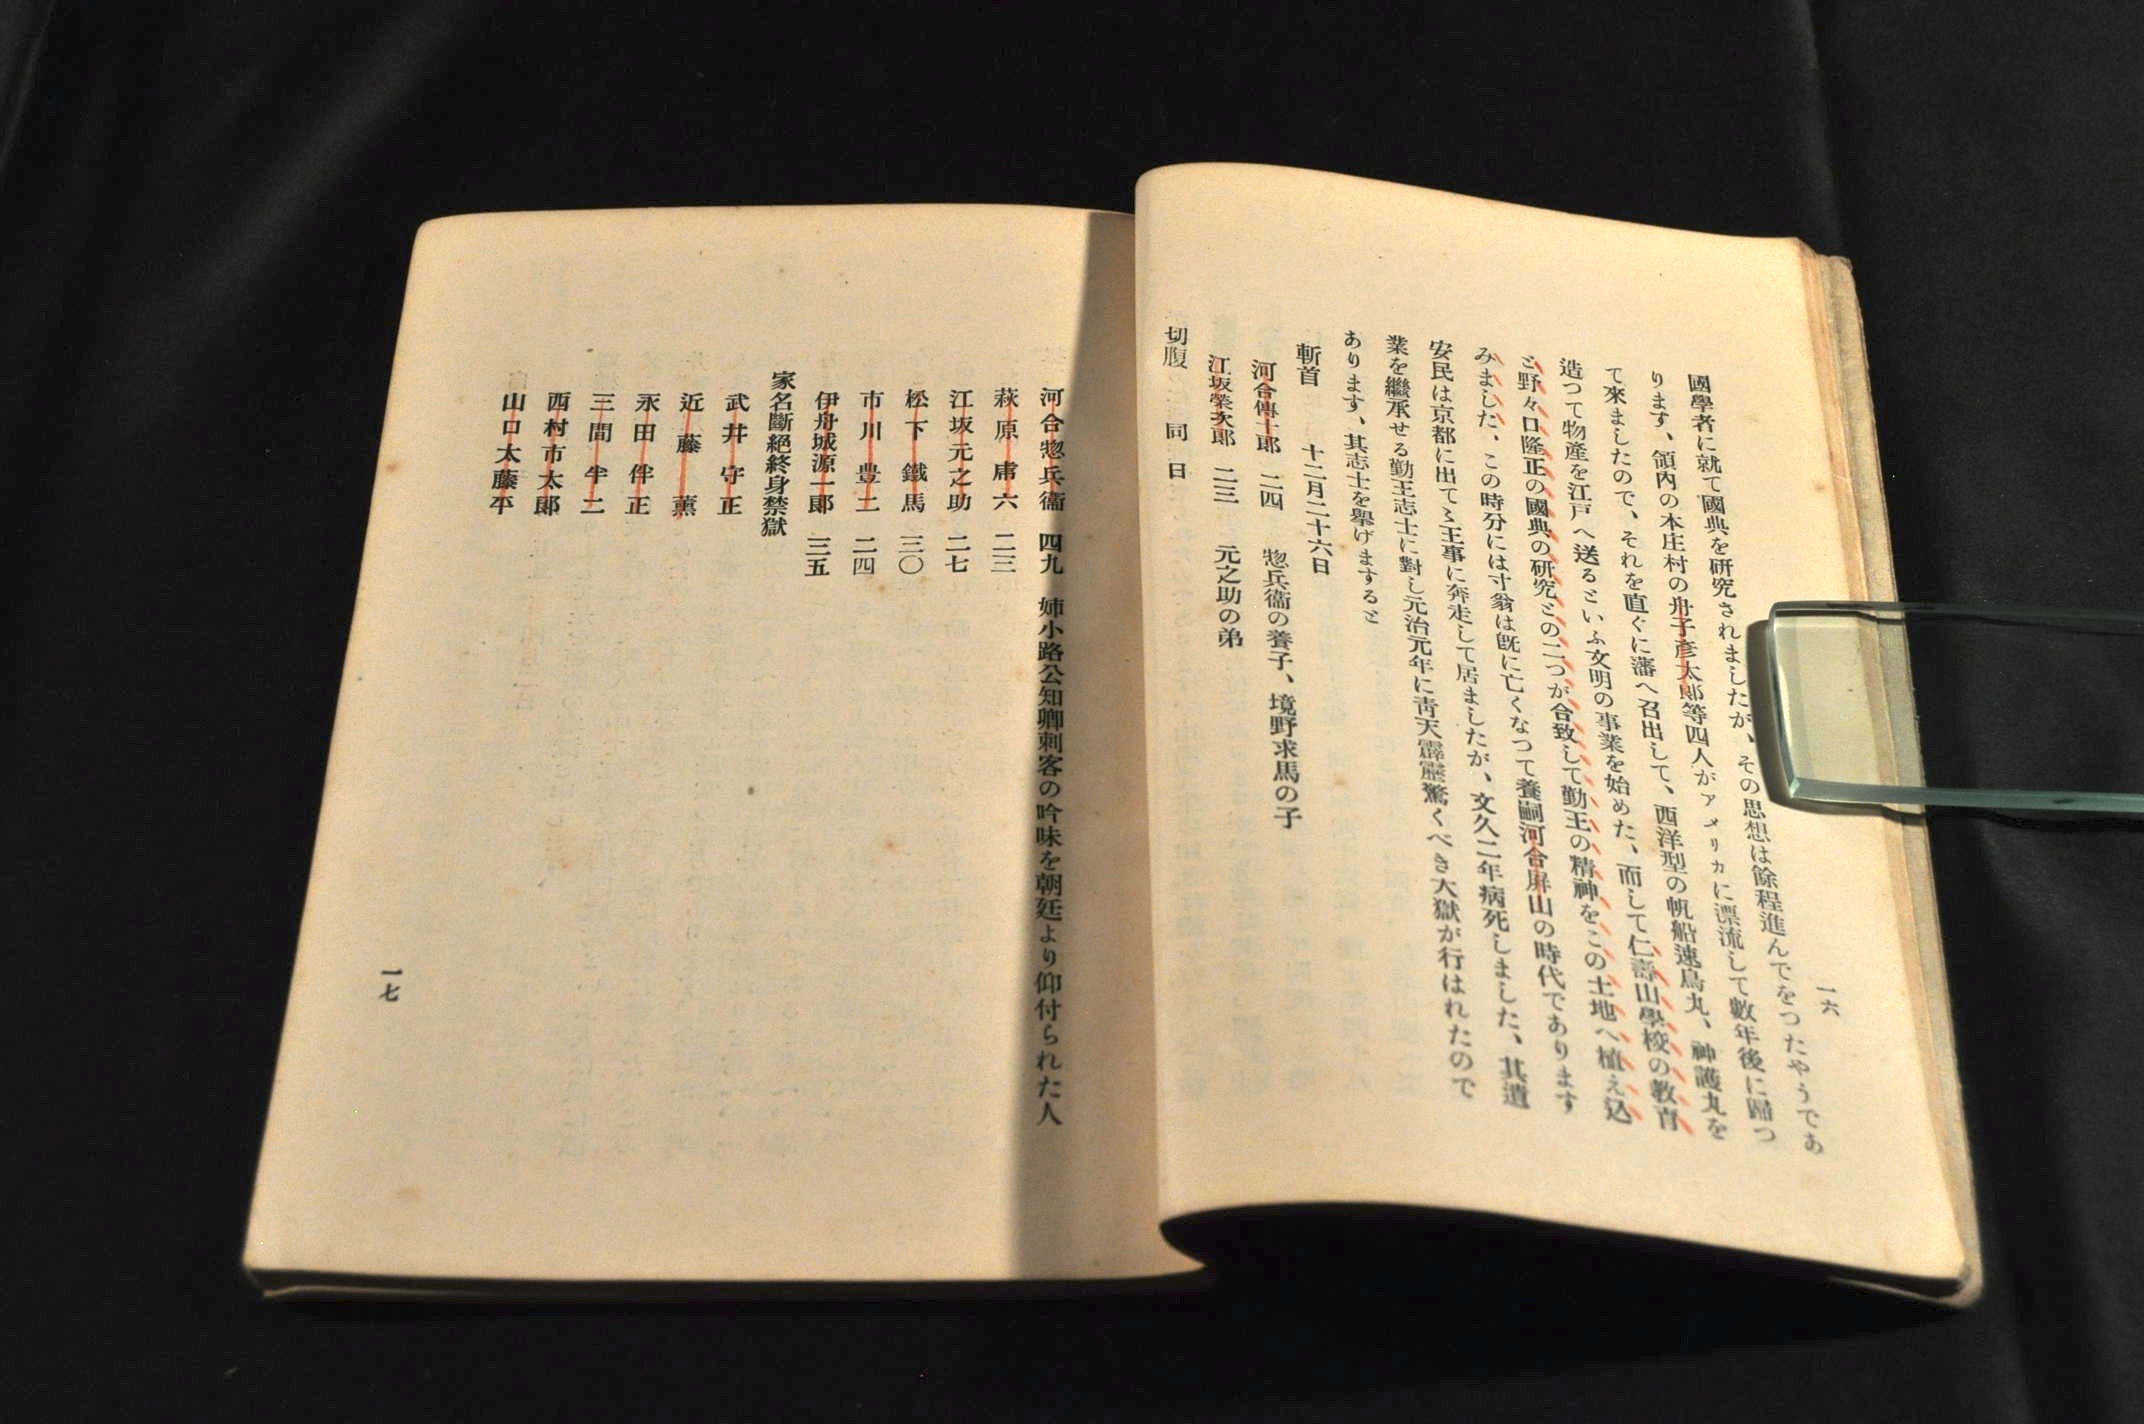 一六
國學者に就て國典を研究されましたが、その思想は餘程進んでをつたやうであ
ります、領内の本庄村の舟子彦太郎等四人がアメリカに漂流して數年後に歸つ
て來ましたので、それを直ぐに藩へ召出して、西洋型の帆船速鳥丸、神護丸を
造つて物産を江戸へ送るといふ文明の事業を始めた、而して仁壽山學校の教育
と野々口隆正の國典の研究との二つが合致して勤王の精神をこの土地へ植え込
みました、この時分には寸翁は既に亡くなつて養嗣河合屏山の時代であります
安民は京都に出てゝ王事に奔走して居ましたが、文久二年病死しました、其遺
業を繼承せる勤王志士に對し元治元年に靑天霹靂驚くべき大獄が行はれたので
あります、其志士を擧げますると
斬首 十二月二十六日
河合傳十郎 二四 惣兵衞の養子、境野求馬の子
江坂榮次郎 二三 元之助の弟
切腹 同日
河合惣兵衞 四九 姉小路公知卿刺客の吟味を朝廷より仰付られた人
萩原庸六 二三
江坂元之助 二七
松下鐵馬 三〇
市川豊二 二四
伊舟城源一郎 三五
家名斷絕終身禁獄
武井守正
近藤薰
永田伴正
三間半二
西村市太郎
山口太藤平
一七